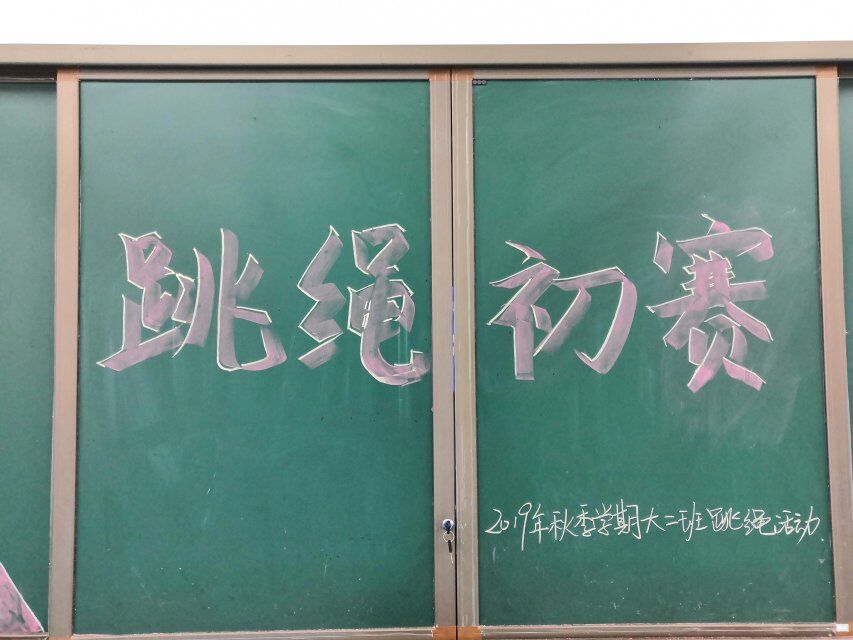 跳绳初赛
2019年秋季学期大二班跳绳活动.